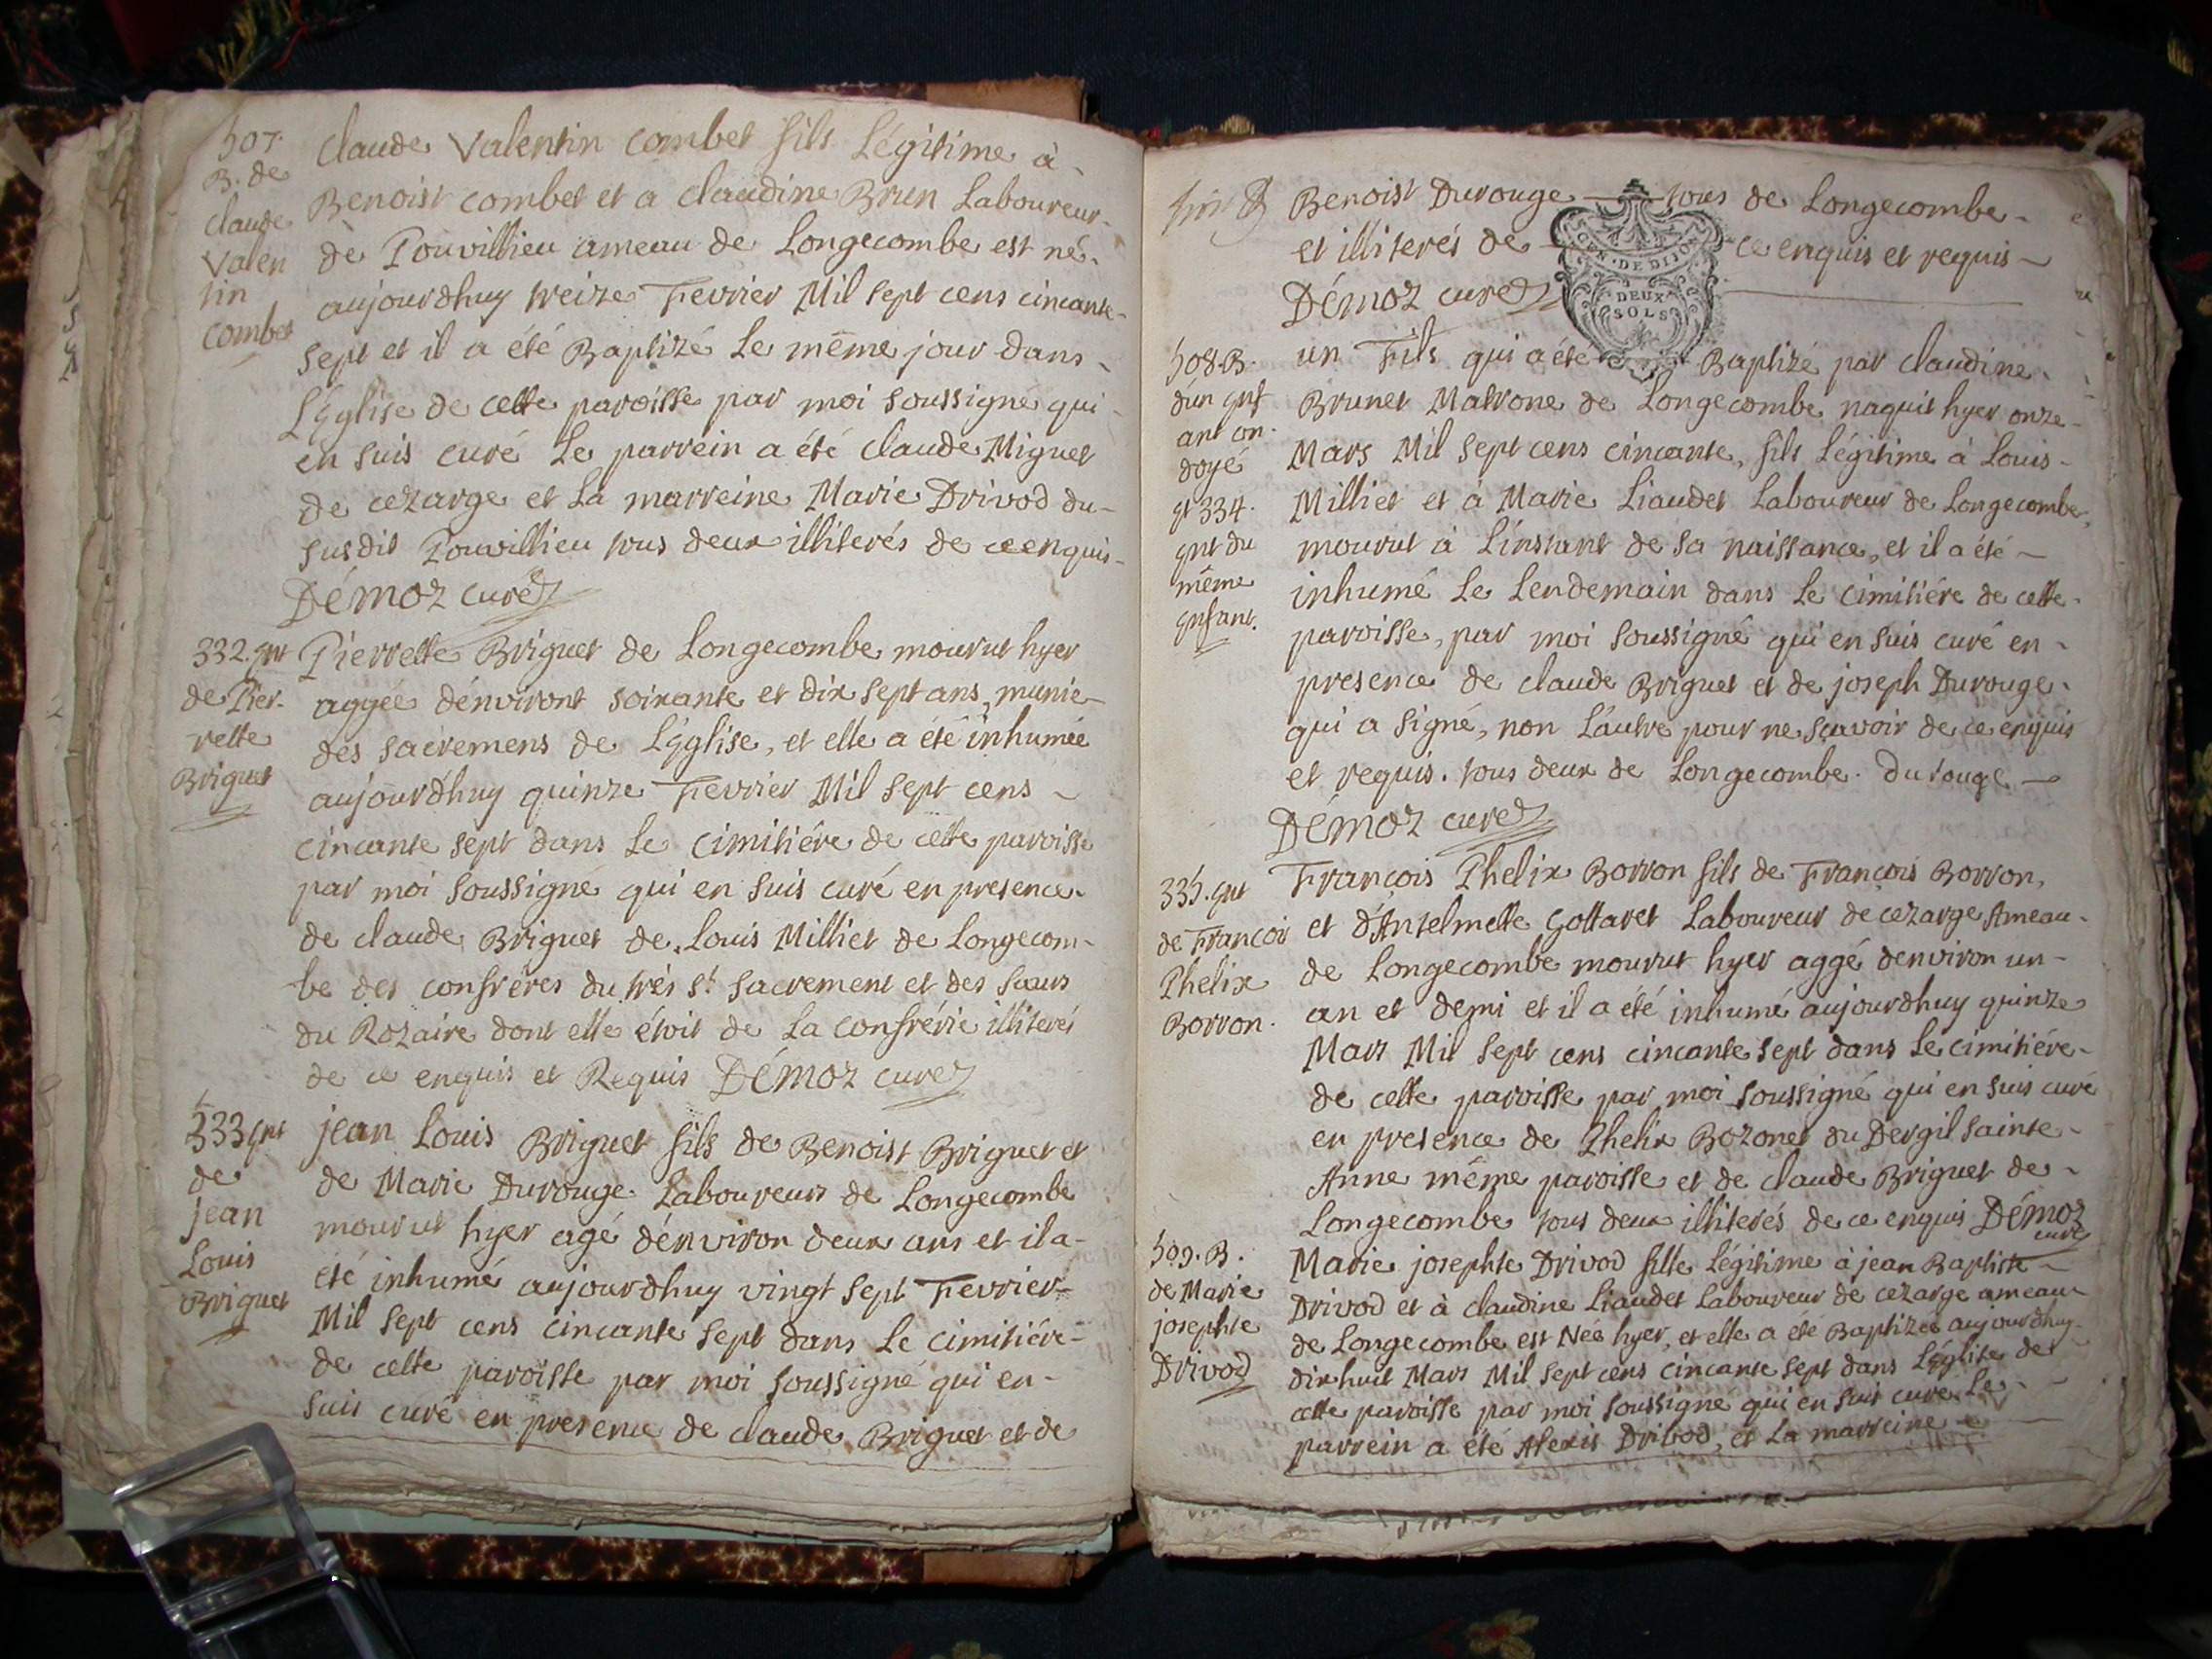 507.
B. de
Claude
Valen
tin
Combet
Claude Valentin Combet fils Légitime à
Benoist Combet et a Claudine Brun Laboureur
de Pouvillieu ameau de Longecombe est né
aujourdhuy treize Fevrier Mil sept cens cincante
sept et il a été Baptizé Le même jour dans
LEglise de cette paroisse par moi soussigné qui
en suis curé Le parrein a été Claude Miguet
de cezarge et La marreine Marie Drivod du
susdit Pouvillieu tous deux illiterés de ce enquis
Démoz curé
332. Ent
de Pier-
rette
Briguet
Pierrette Briguet de Longecombe mourut hyer
aggée dénviront soixante et dix sept ans, munie
des sacremens de LEglise, et elle a été inhumée
aujourdhuy quinze Fevrier Mil sept cens
cincante sept dans Le cimitiére de cette paroisse
par moi soussigné qui en suis curé en presence
de Claude Briguet de Louis Milliet de Longecom-
be des confréres du trés st Sacrement et des sœurs
du Rozaire dont elle étoit de La confrérie illiterés
de ce enquis et Requis Démoz curé
333 Ent
de
jean
Louis
Briguet
jean Louis Briguet fils de Benoist Briguet et
de Marie Durouge Laboureurs de Longecombe
mourut hyer agé dénviron deux ans et il a
été inhumé aujourdhuy vingt sept Fevrier
Mil sept cens cincante sept dans Le cimitiére
de cette paroisse par moi soussigné qui en
suis curé en presence de Claude Briguet et de
Benoist Durouge tous de Longecombe
et illiterés de ce enquis et requis
Démoz curé
GEN. DE DIJON
DEUX
SOLS
508. B.
dún enf
ant on
doyé
et 334.
Ent du
même
Enfant.
un Fils qui a été Baptizé par Claudine
Brunet Matrone de Longecombe naquit hyer onze
Mars Mil sept cens cincante, fils Légitime à Louis
Milliet et à Marie Liaudet Laboureur de Longecombe,
mourut à Línstant de sa naissance, et il a été
inhumé Le Lendemain dans Le cimitiére de cette
paroisse, par moi soussigné qui en suis curé en
presence de Claude Briguet et de joseph Durouge
qui a signé, non Láutre pour ne sçavoir de ce enquis
et requis. tous deux de Longecombe. durouge
Démoz curé
335. Ent
de François
Phelix
Borron.
François Phelix Borron fils de François Borron,
et dÁntelmette Gottaret Laboureur de cezarge Ameau
de Longecombe mourut hyer aggé denviron un
an et demi et il a été inhumé aujourdhuy quinze
Mars Mil sept cens cincante sept dans Le cimitiére
de cette paroisse par moi soussigné qui en suis curé
en presence de Phelix Bozonet du Dergil sainte
Anne même paroisse et de Claude Briguet de
Longecombe tous deux illiterés de ce enquis Démoz
curé
509. B.
de Marie
josephte
Drivod
Marie josephte Drivod fille Légitime à jean Baptiste
Drivod et à Claudine Liaudet Laboureur de cezarge ameau
de Longecombe est Née hyer, et elle a été Baptizée aujourdhuy
dixhuit Mars Mil sept cens cincante sept dans LEglise de
cette paroisse par moi soussigné qui en suis curé Le
parrein a été Alexis Drivod, et La marreine